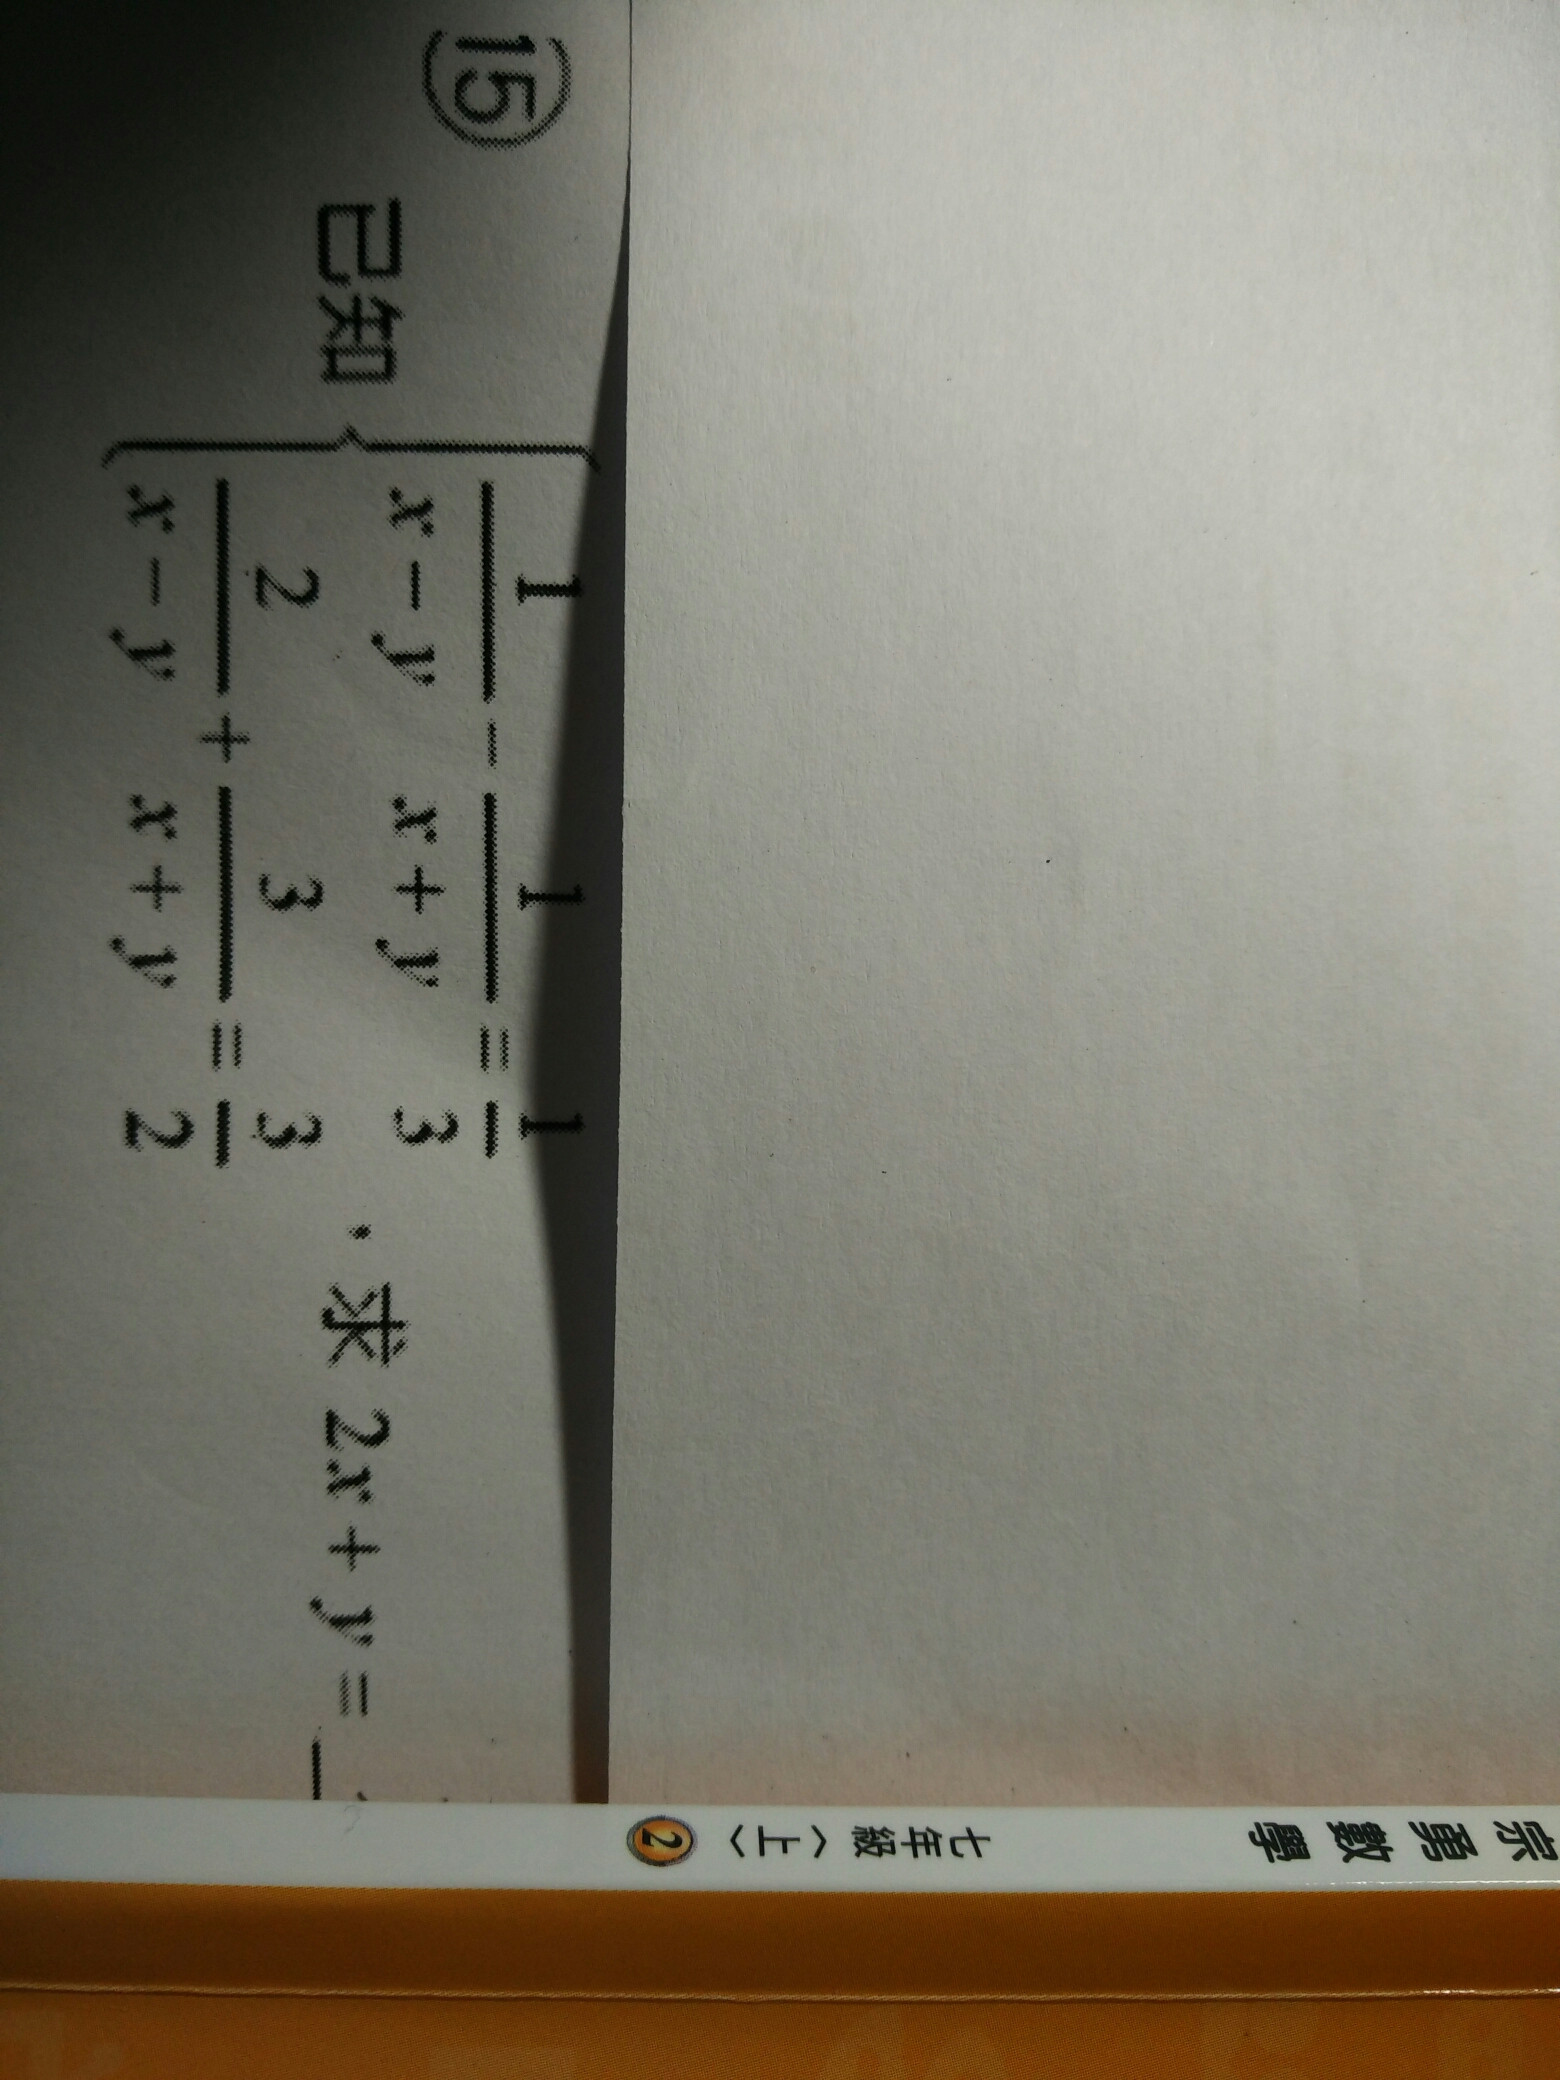 ⑮ 已知 { 1/(x-y) - 1/(x+y) = 1/3
2/(x-y) + 3/(x+y) = 3/2 ,求 2x+y=
宗勇數學 七年級〈上〉 2